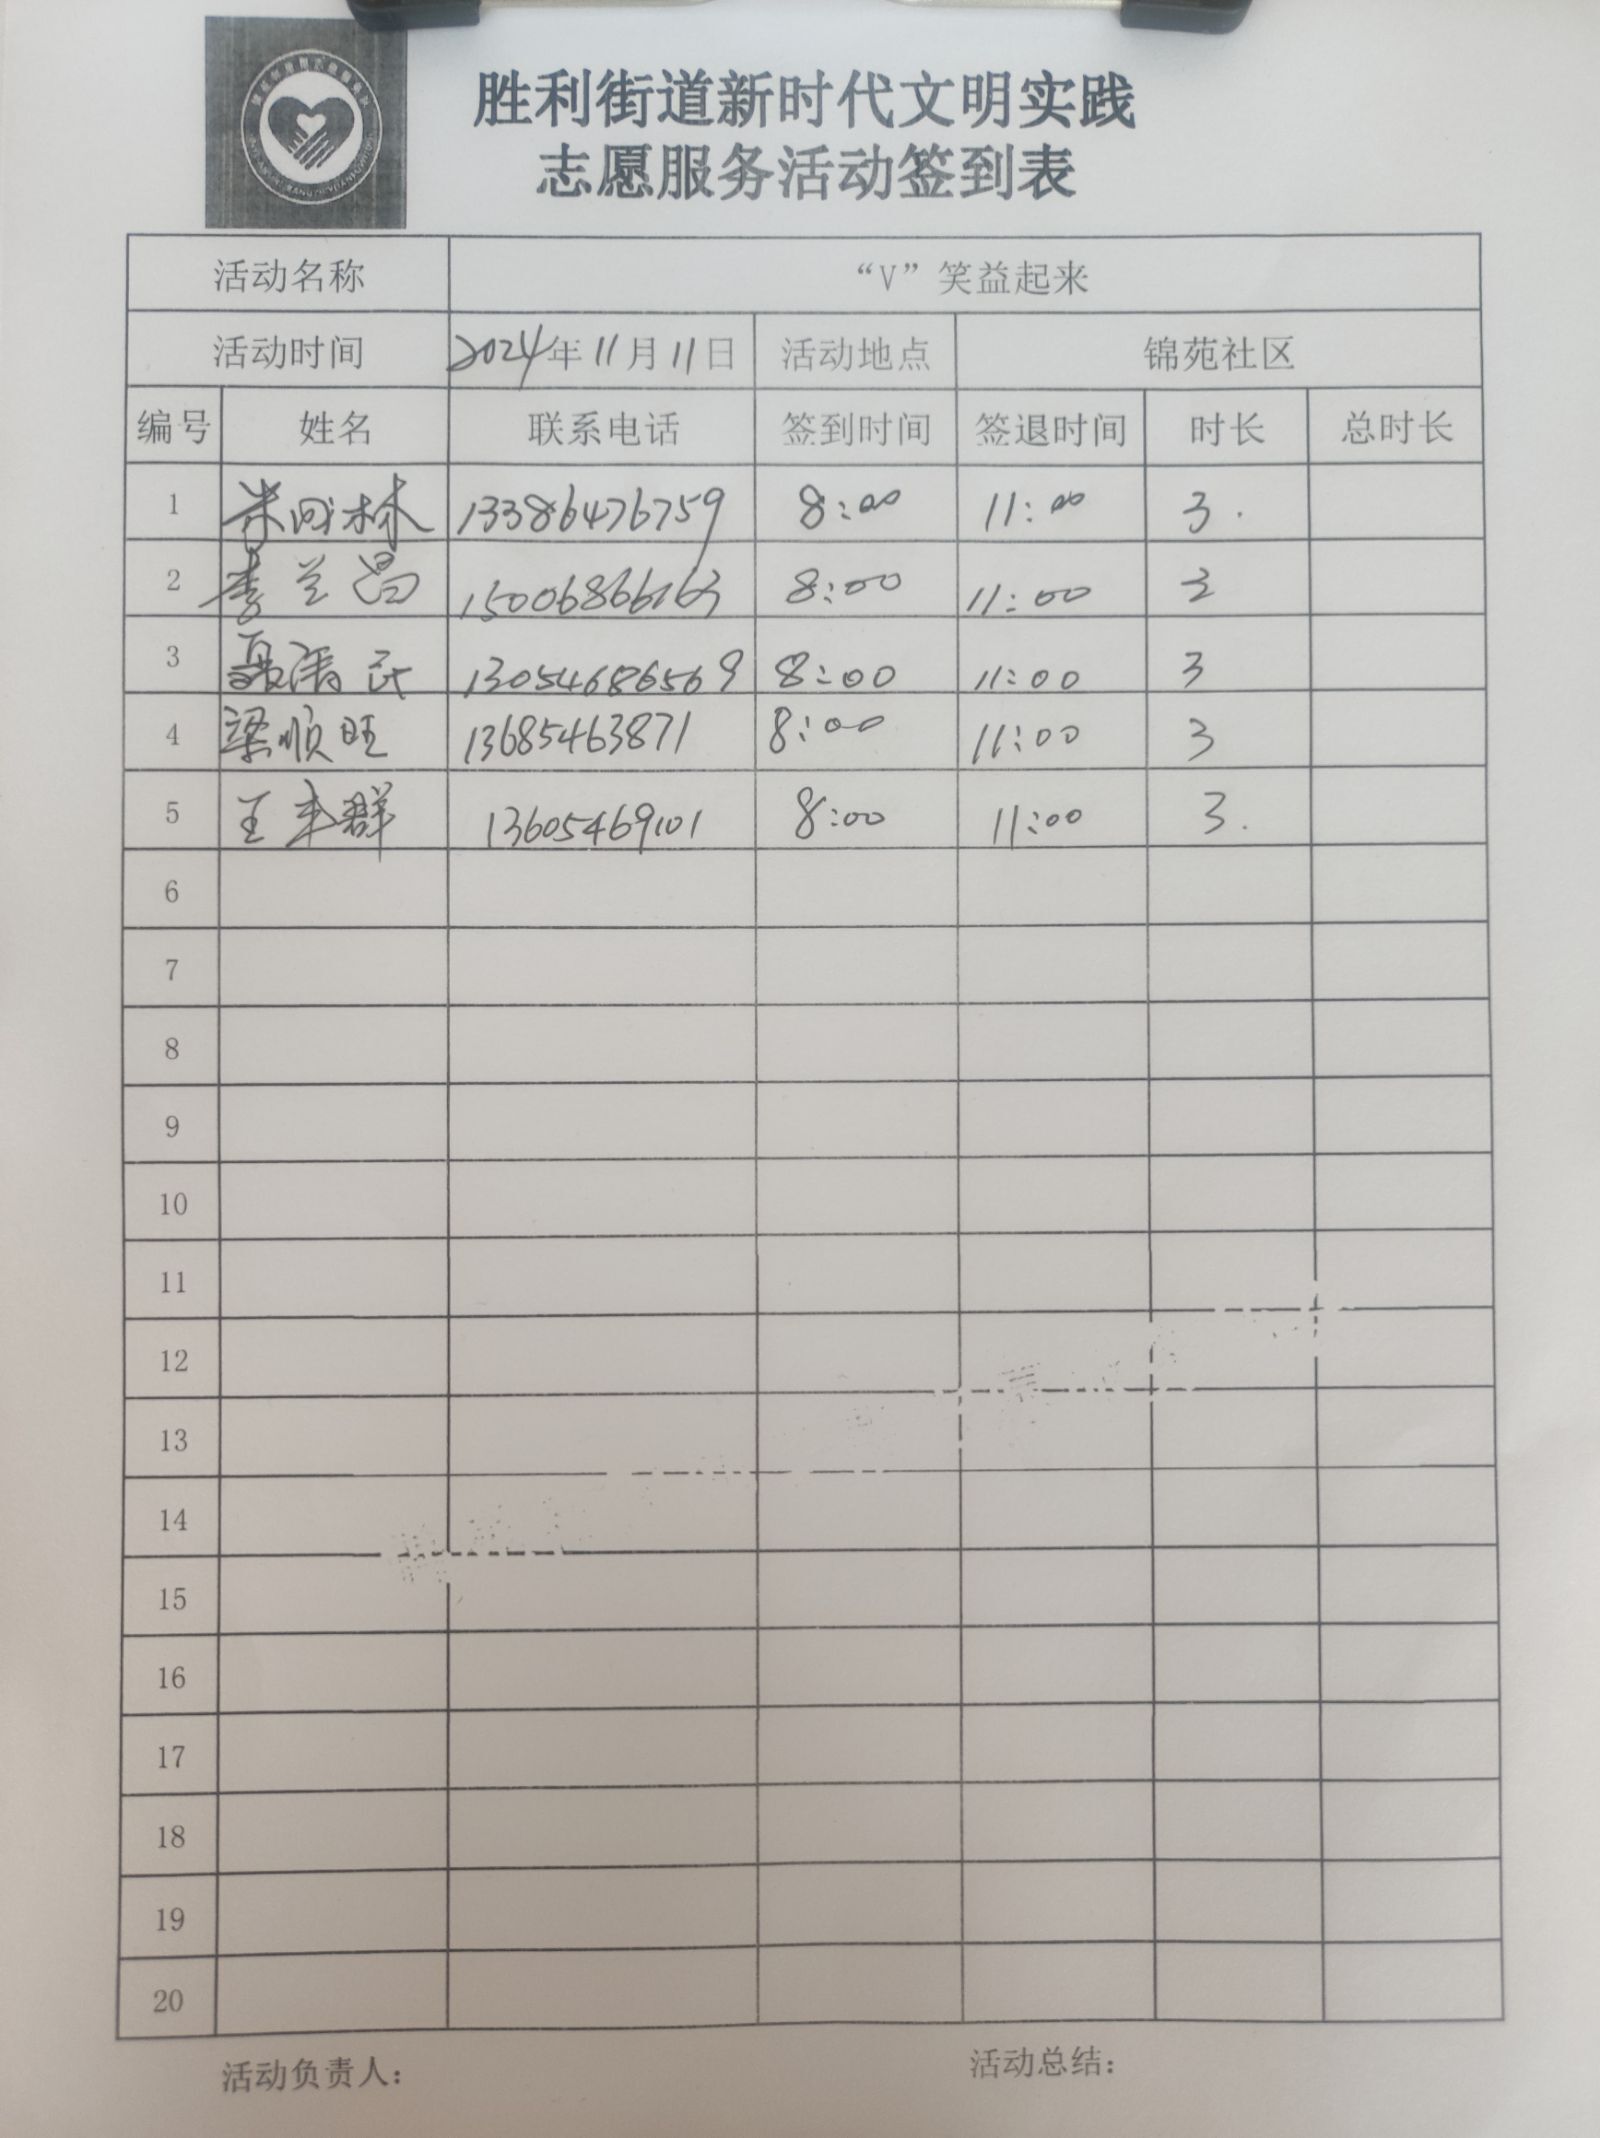 胜利街道新时代文明实践
志愿服务活动签到表
活动名称 “V”笑益起来
活动时间 2024年11月11日 活动地点 锦苑社区
编号 姓名 联系电话 签到时间 签退时间 时长 总时长
1 林 13386476759 8:00 11:00 3.
2 李兰昌 15006866163 8:00 11:00 3
3 聂清云 13054686569 8:00 11:00 3
4 梁顺旺 13685463871 8:00 11:00 3
5 王丰群 13605469101 8:00 11:00 3.
6
7
8
9
10
11
12
13
14
15
16
17
18
19
20
活动负责人: 活动总结: